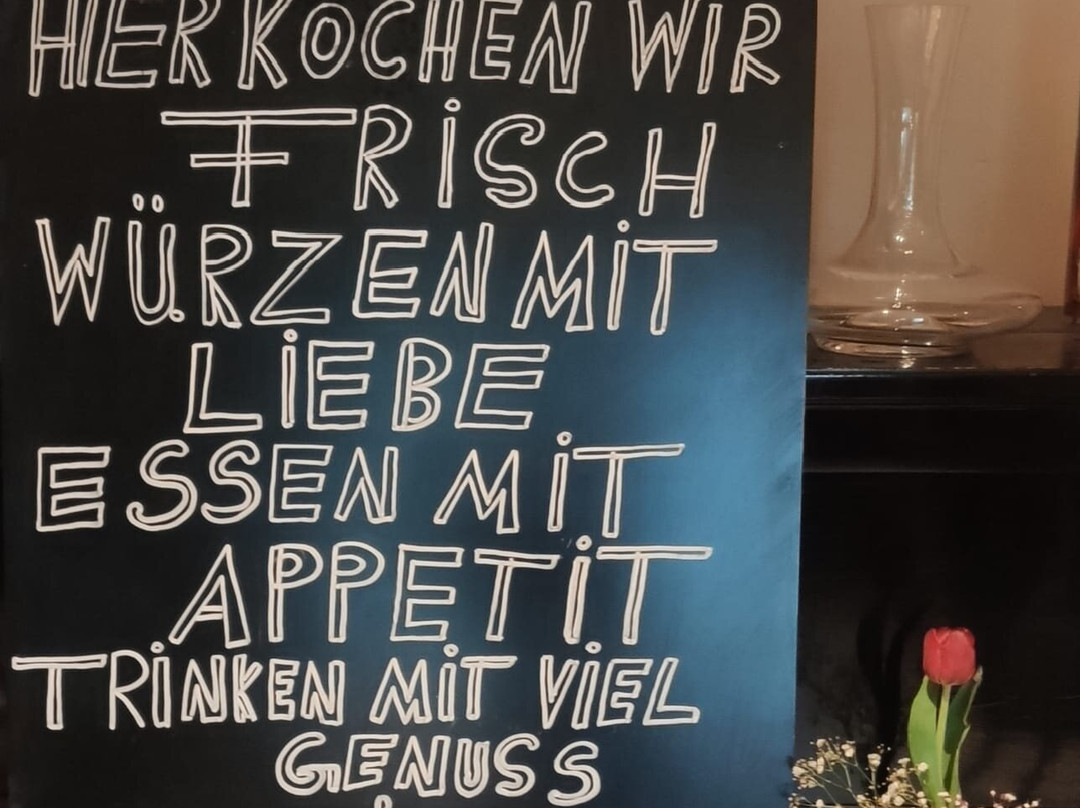 HIER KOCHEN WIR
FRiSCH
WÜRZEN MiT
LiEBE
ESSEN MiT
APPETiT
TRiNKEN MiT ViEL
GENUSS